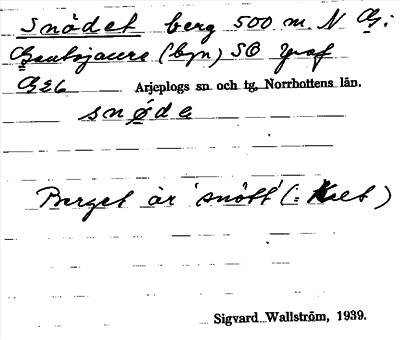 Snödet berg 500 m N G:
Gautojaure (byn) SO
G26 Arjeplogs sn och tg, Norrbottens län.
snøde
Berget är 'snött' (: Kalt)
Sigvard Wallström, 1939.